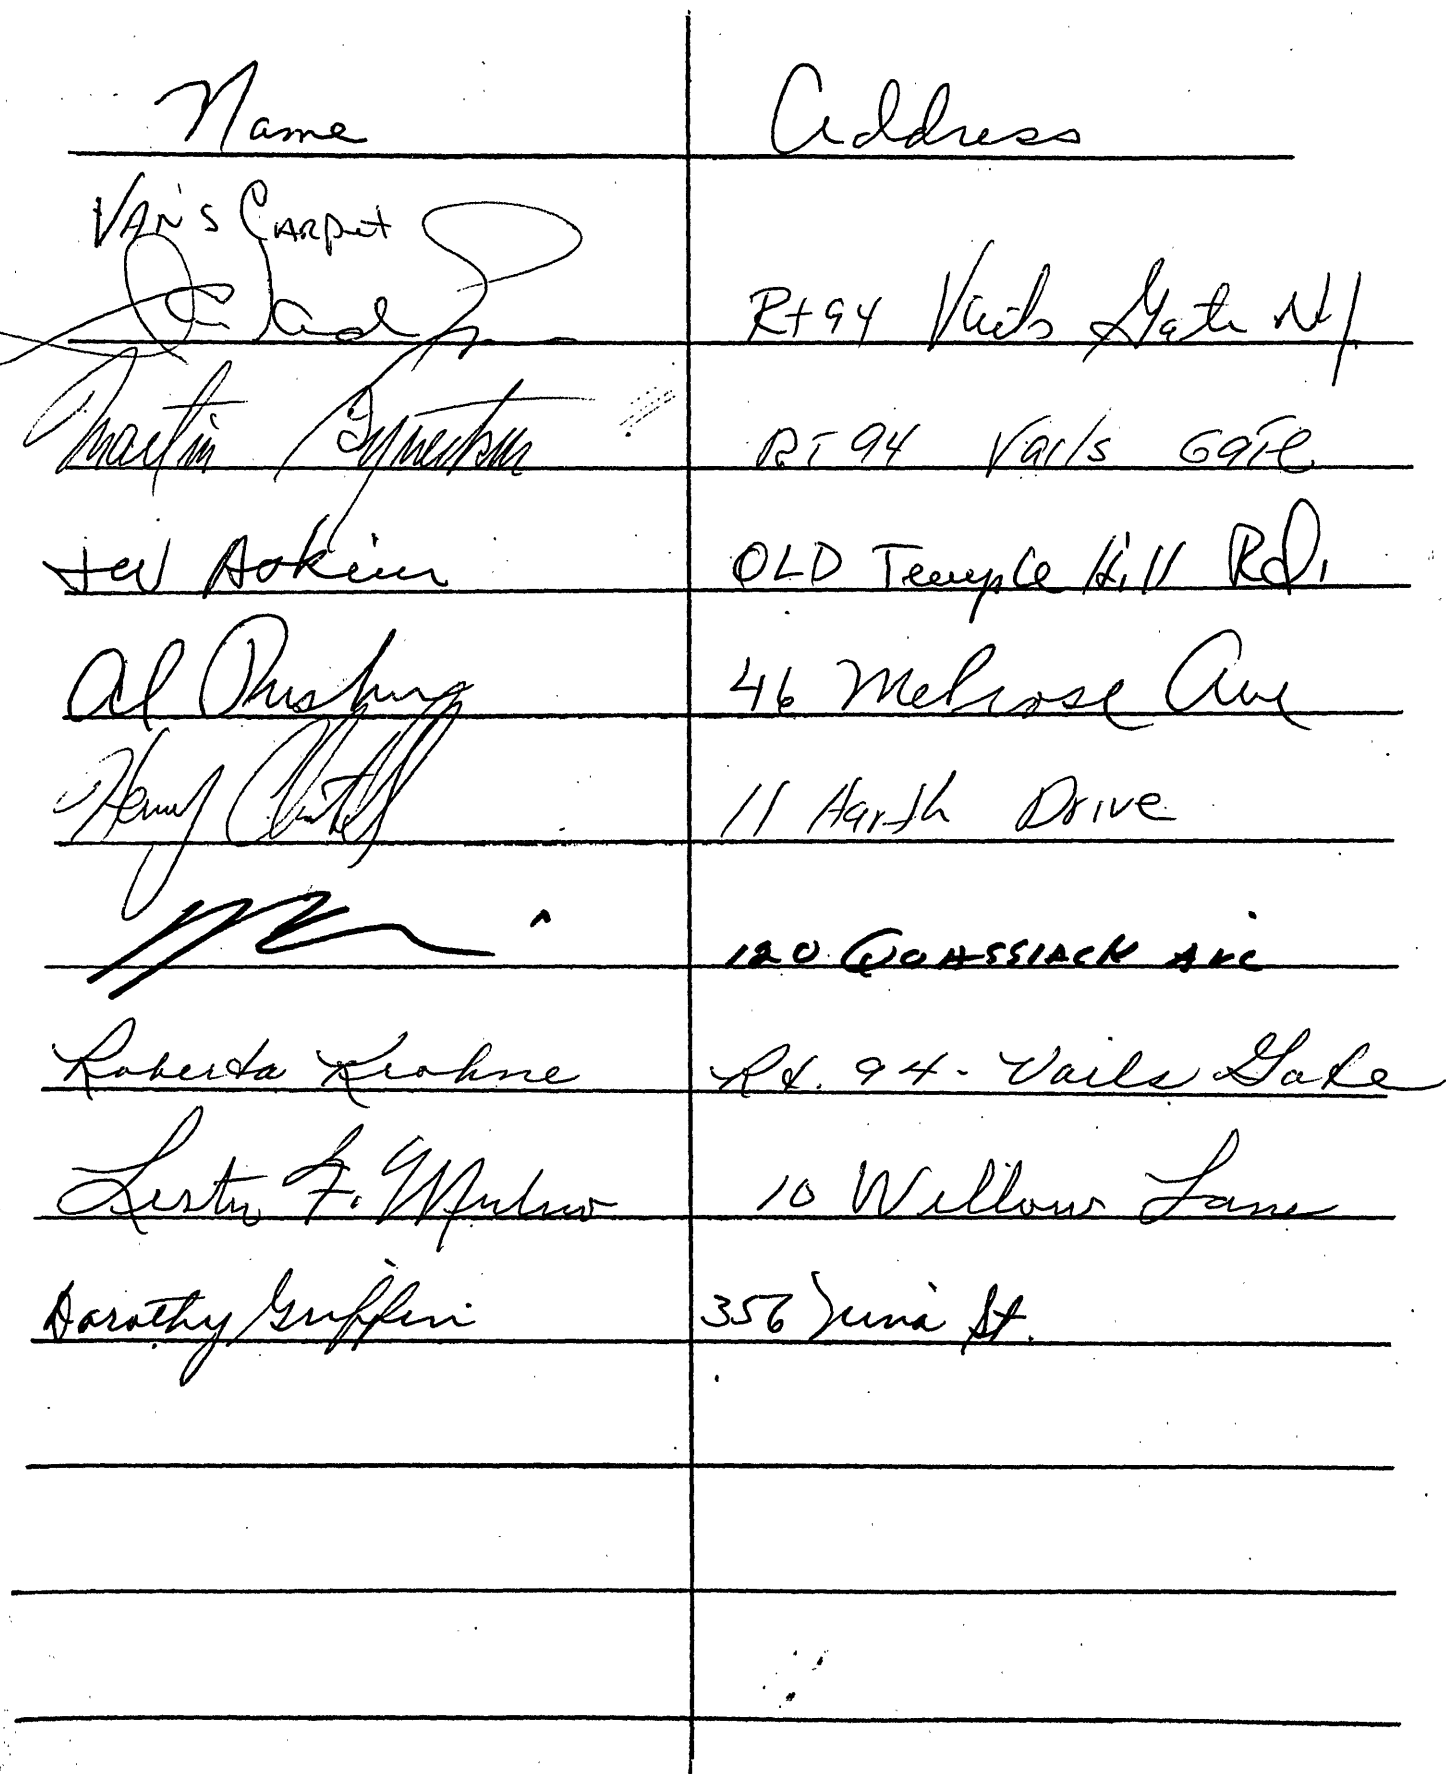 Name Address
VAN'S CARPet
Rt 94 Vails Gate NY
Martin RT 94 Vails GATE
Ted OLD Temple Hill Rd.
Al 46 Melrose Ave
Henry 11 Harth Drive
120 QUASSIACK AVE
Roberta Krohne Rt. 94 - Vails Gate
Lester F. 10 Willow Lane
Dorothy Griffin 356 St.